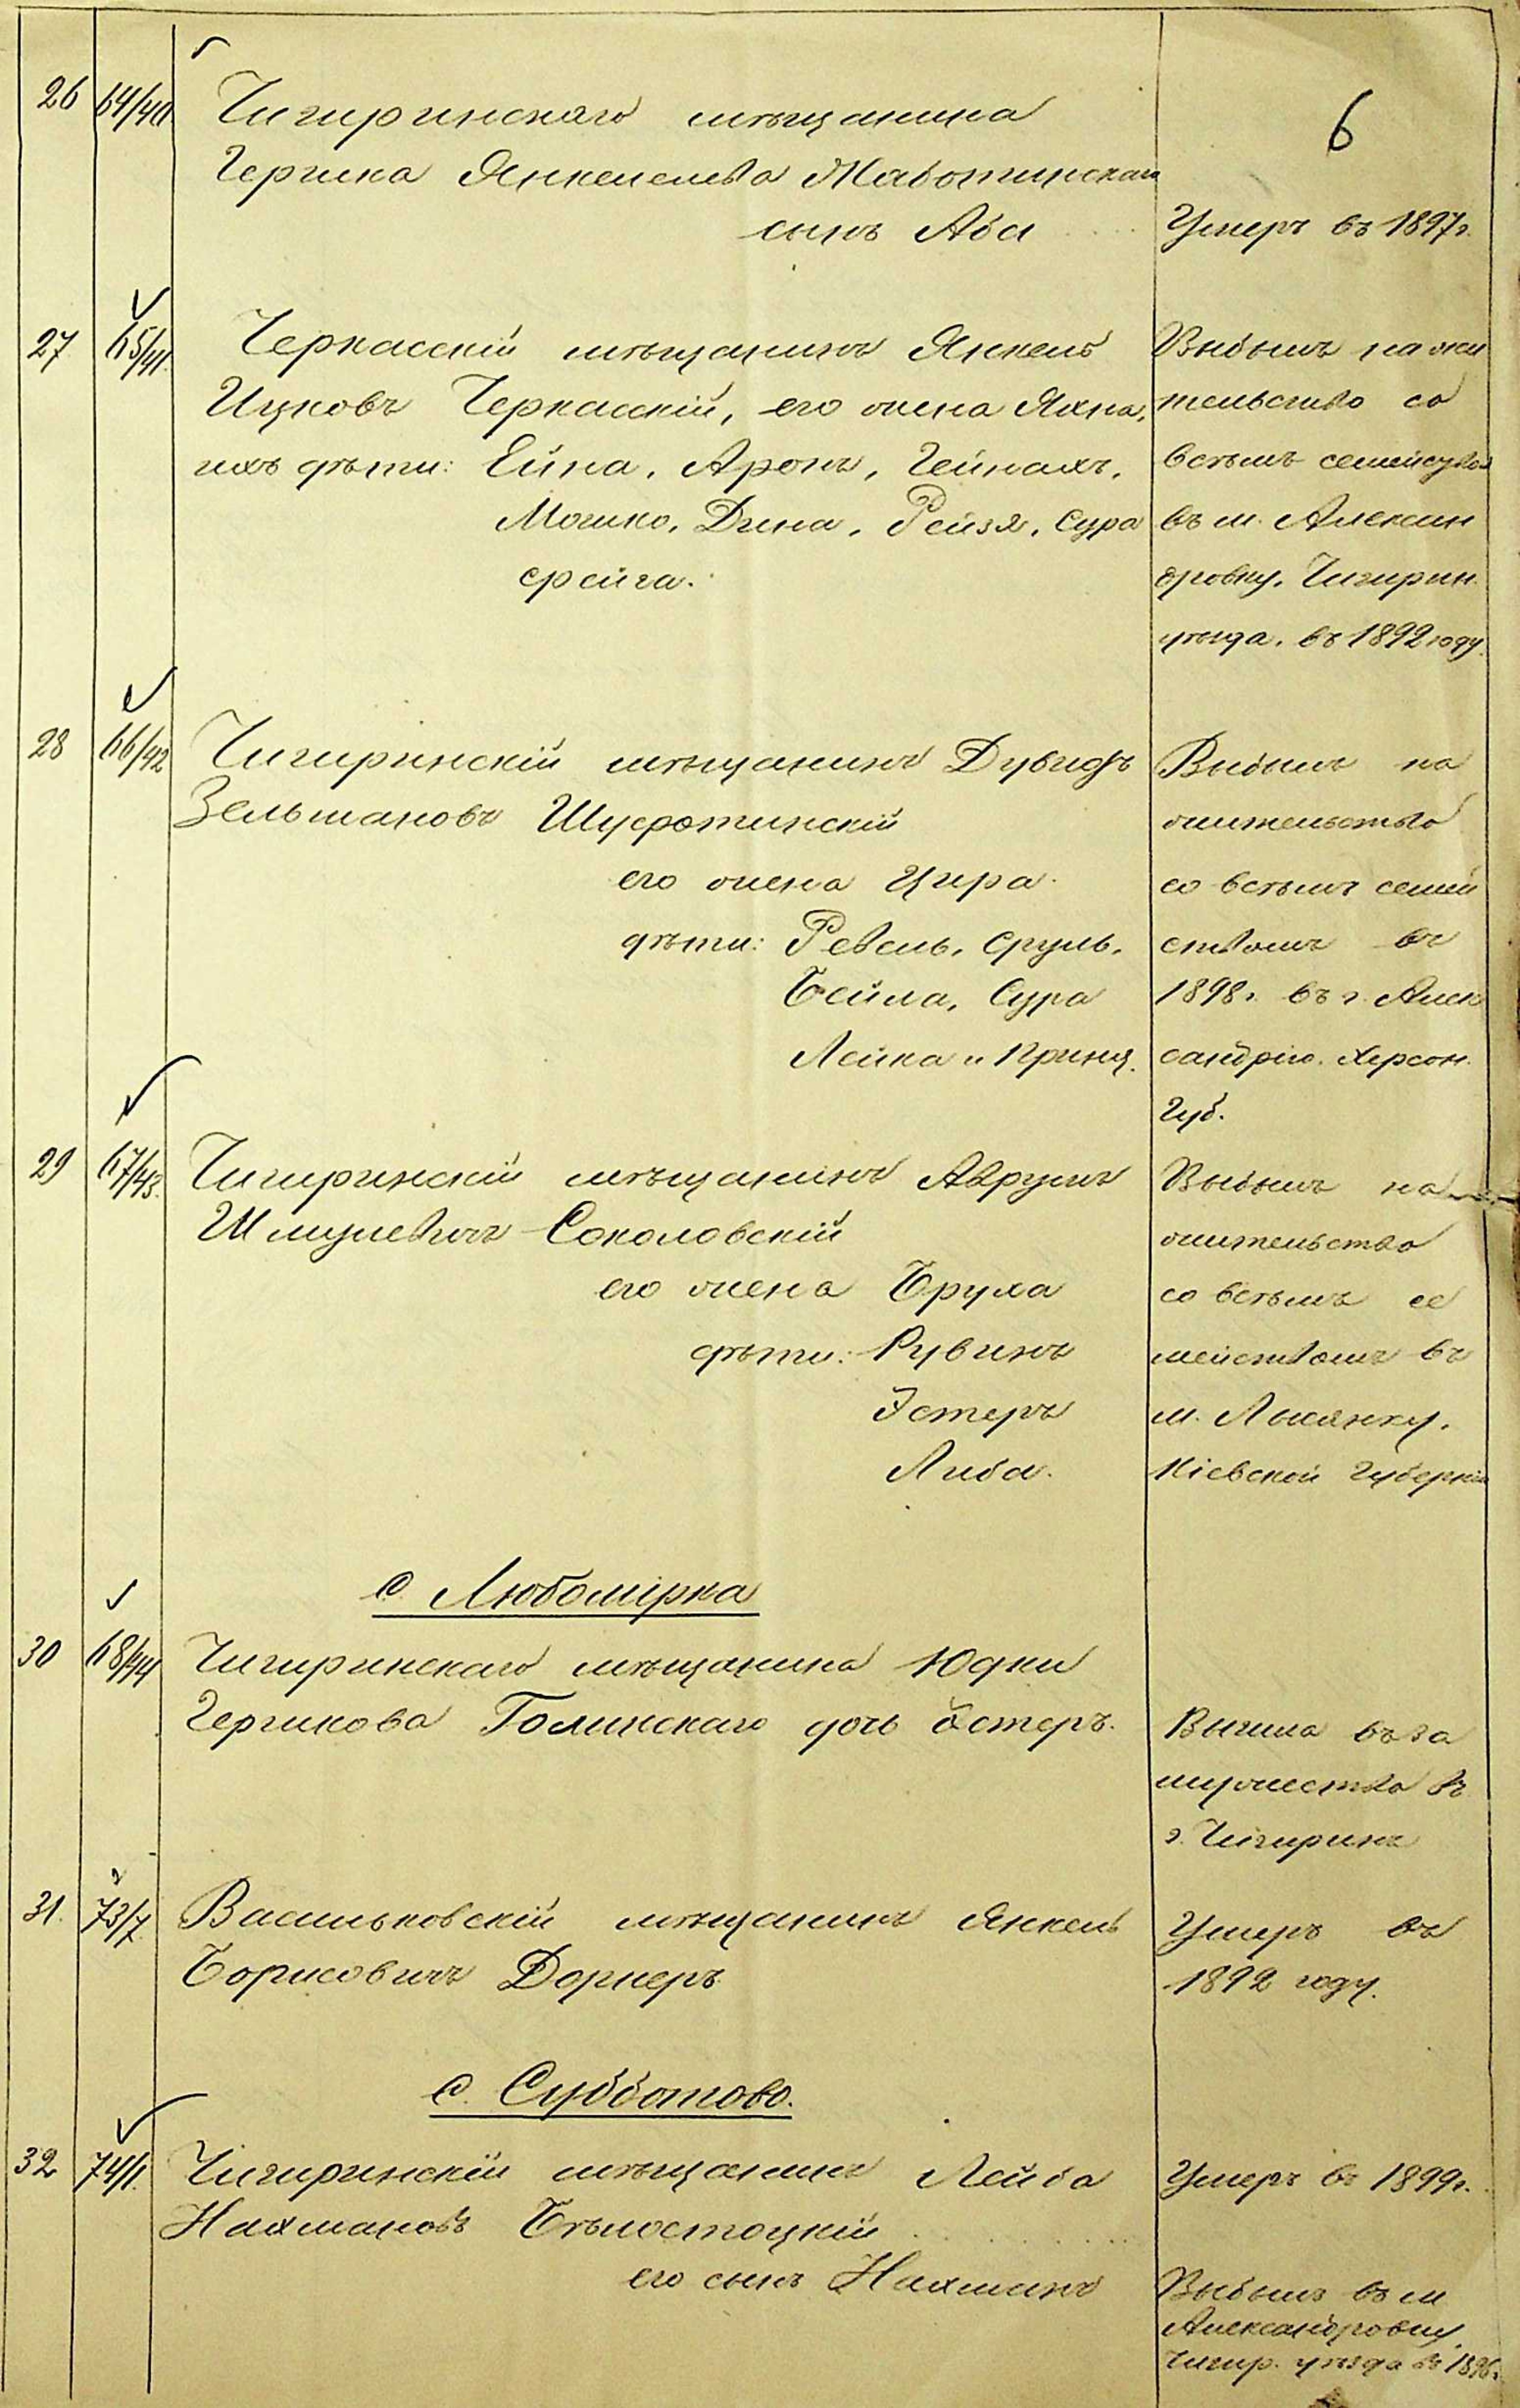 6
26 64/40 Чигиринскаго мѣщанина
Гершка Янкелева Жаботинскаго
сынъ Аба
Умеръ въ 1897 г.
27 65/41 Черкасскій мѣщанинъ Янкель
Ицковъ Черкасскій, его жена Яхна,
ихъ дѣти: Ейна, Аронъ, Гейнахъ,
Мошко, Дина, Рейзя, Сура
Фейга.
Выбылъ на жи
тельство со
всѣмъ семейством
въ м. Алексан
дровку, Чигирин.
уѣзда, въ 1892 году.
28 66/42 Чигиринскій мѣщанинъ Дувидъ
Зельмановъ
его жена Цира.
дѣти: Ревель, Сруль,
Бейла, Сура
Лейка и Принц.
Выбылъ на
жительство
со всѣмъ семей
ствомъ въ
1898 г. въ г. Алек
сандрію. Херсон.
Губ.
29 67/43 Чигиринскій мѣщанинъ Аврумъ
Шмулевичъ Соколовскій
его жена Бруха
дѣти: Рувинъ
Эстеръ
Либа.
Выбылъ на
жительство
со всѣмъ се
мействомъ въ
м. Лысянку,
Кіевской Губерніи
с. Любомірка
30 68/44 Чигиринскаго мѣщанина Юдки
Гершкова Голинскаго дочь Эстеръ.
Вышла въ за
мужество въ
г. Чигиринъ
31. 73/7 Васильковскій мѣщанинъ Янкель
Борисовичъ Дорнеръ
Умеръ въ
1892 году.
с. Субботово.
32 74/1. Чигиринскій мѣщанинъ Лейба
Нахмановъ Бѣлостоцкій
Умеръ въ 1899 г.
его сынъ Нахманъ
Выбылъ въ м
Александровку,
Чигир. уѣзда въ 1896 г.